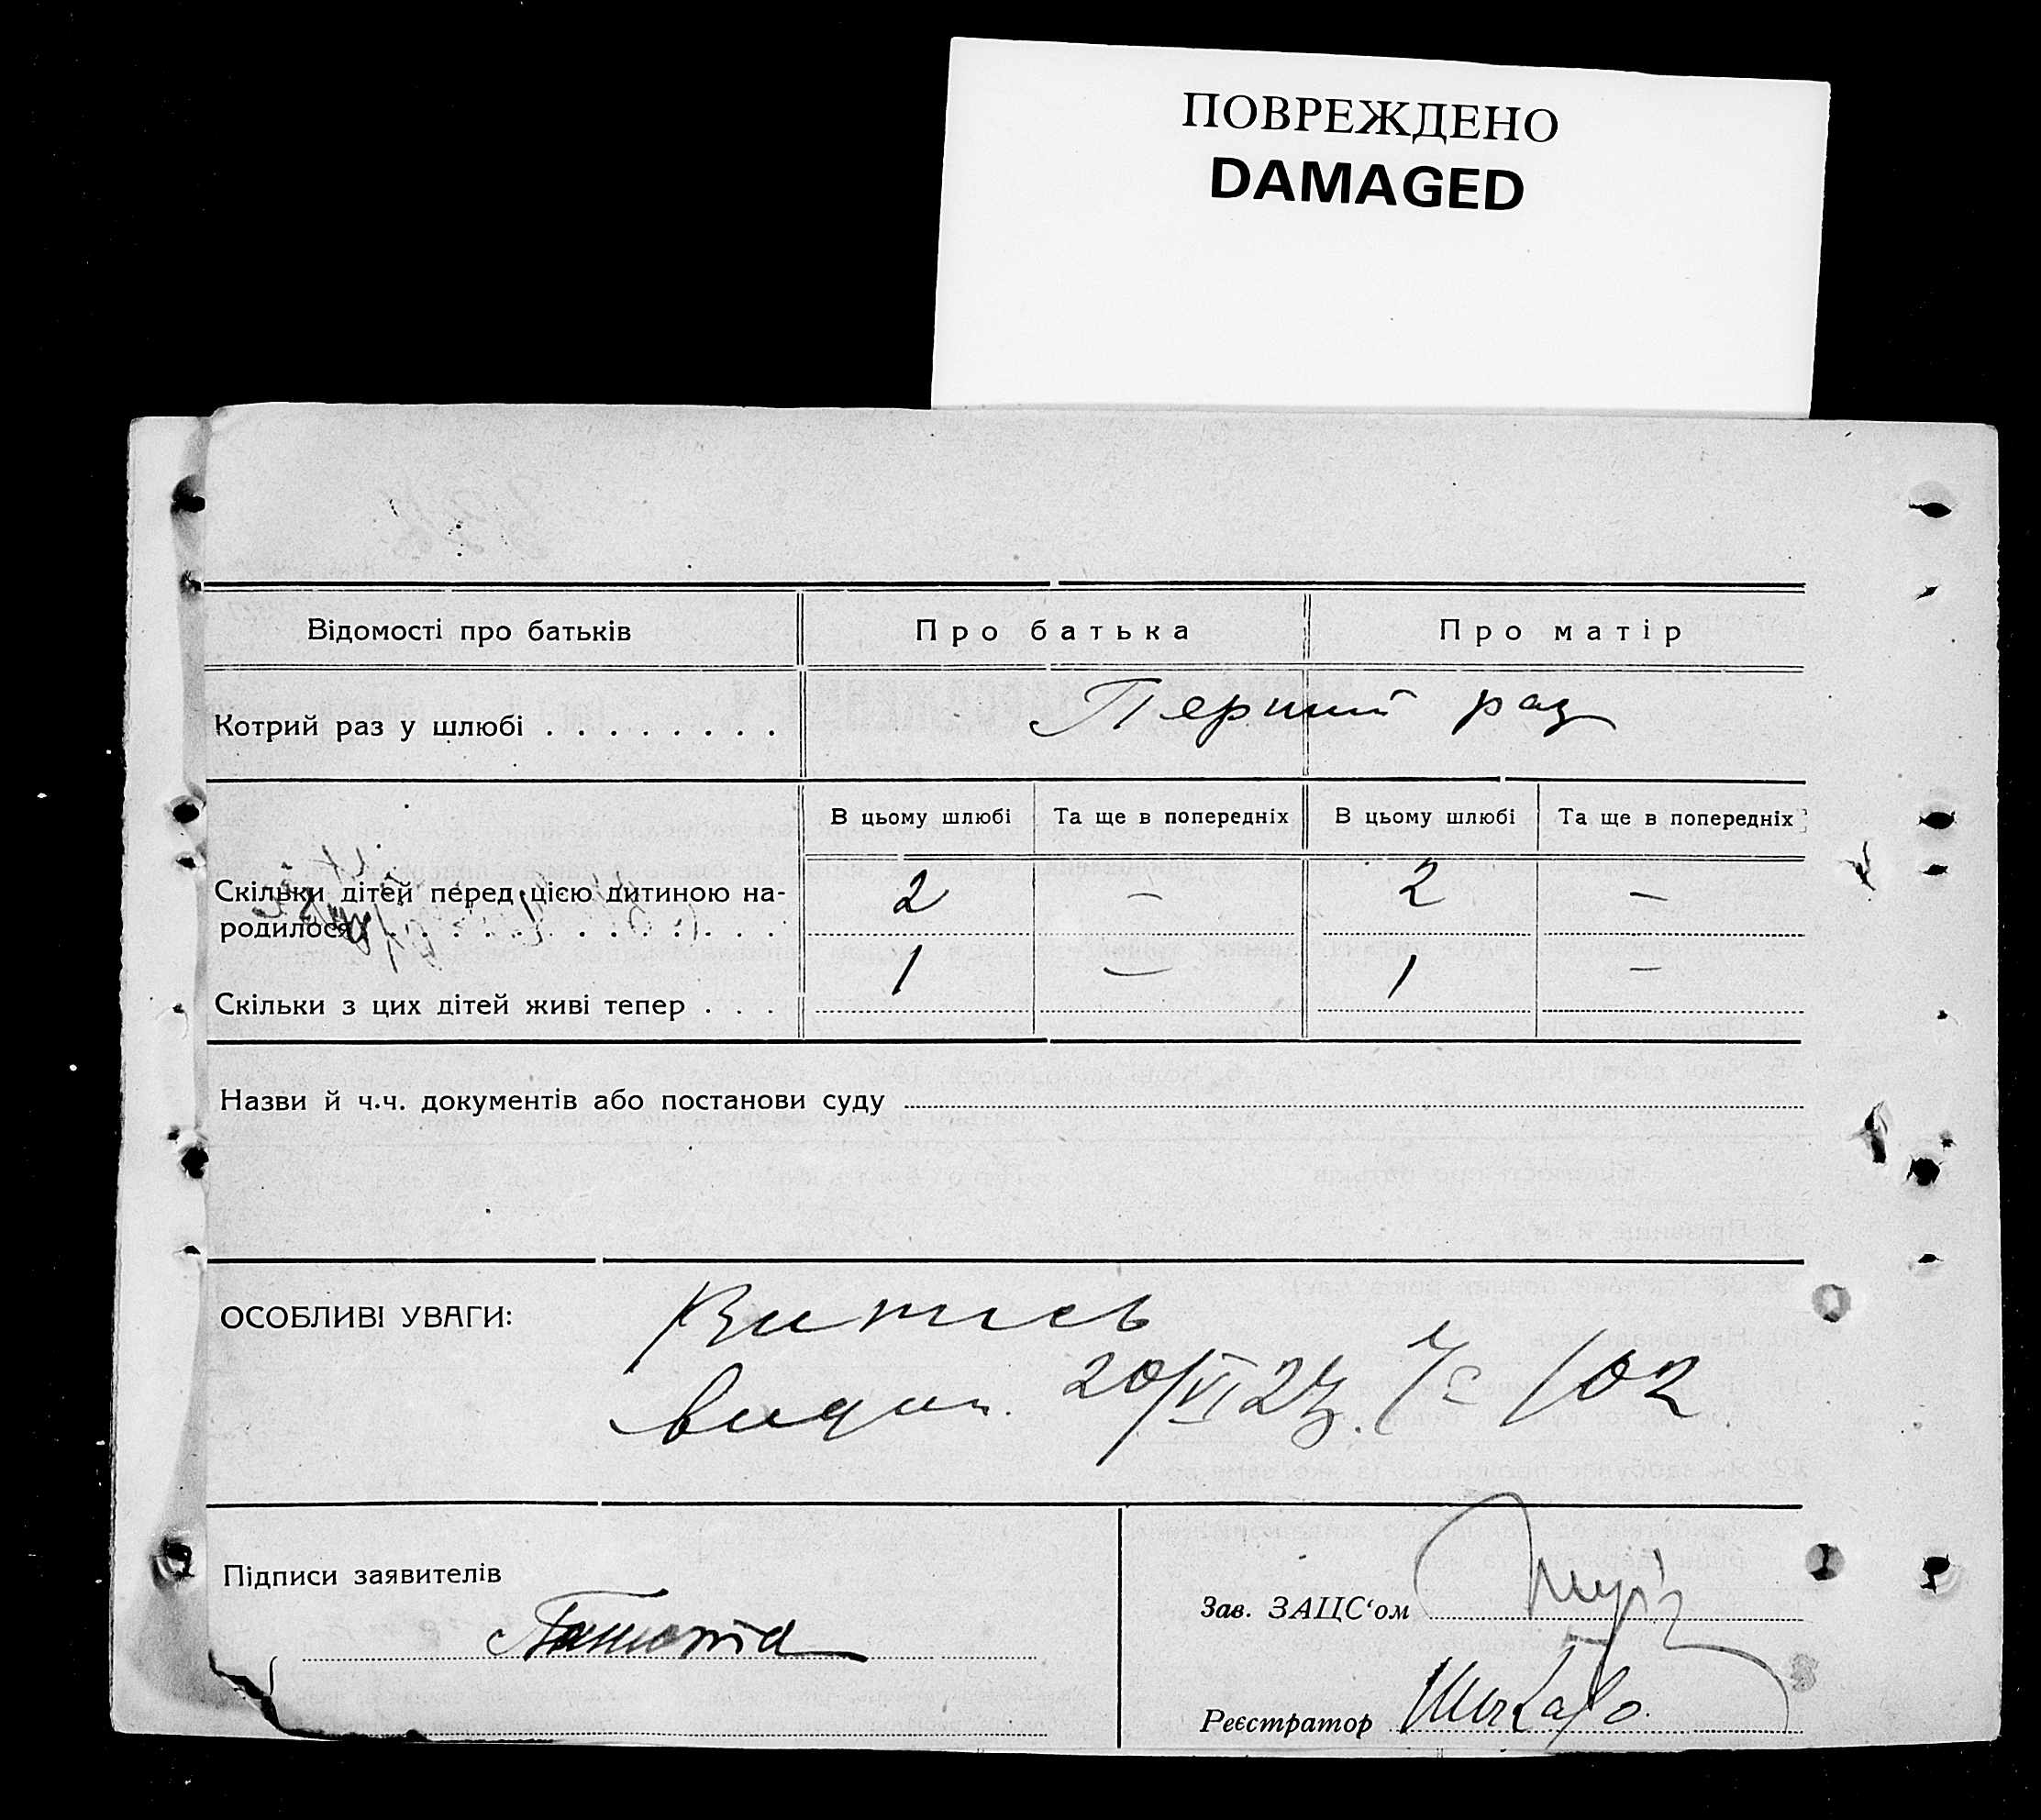 ПОВРЕЖДЕНО
DAMAGED
Відомості про батьків
Про батька
Про матір
Котрий раз у шлюбі . . . . . . . .
Перший раз
В цьому шлюбі
Та ще в попередніх
В цьому шлюбі
Та ще в попередніх
Скільки дітей перед цією дитиною на-
родилося . . . . . . . . . . . . .
2
—
2
—
Скільки з цих дітей живі тепер . . .
1
—
1
—
Назви й ч.ч. документів або постанови суду
ОСОБЛИВІ УВАГИ:
Витись
видан. 20/VI 27 102
Підписи заявителів
Зав. ЗАЦС‘ом
Реєстратор